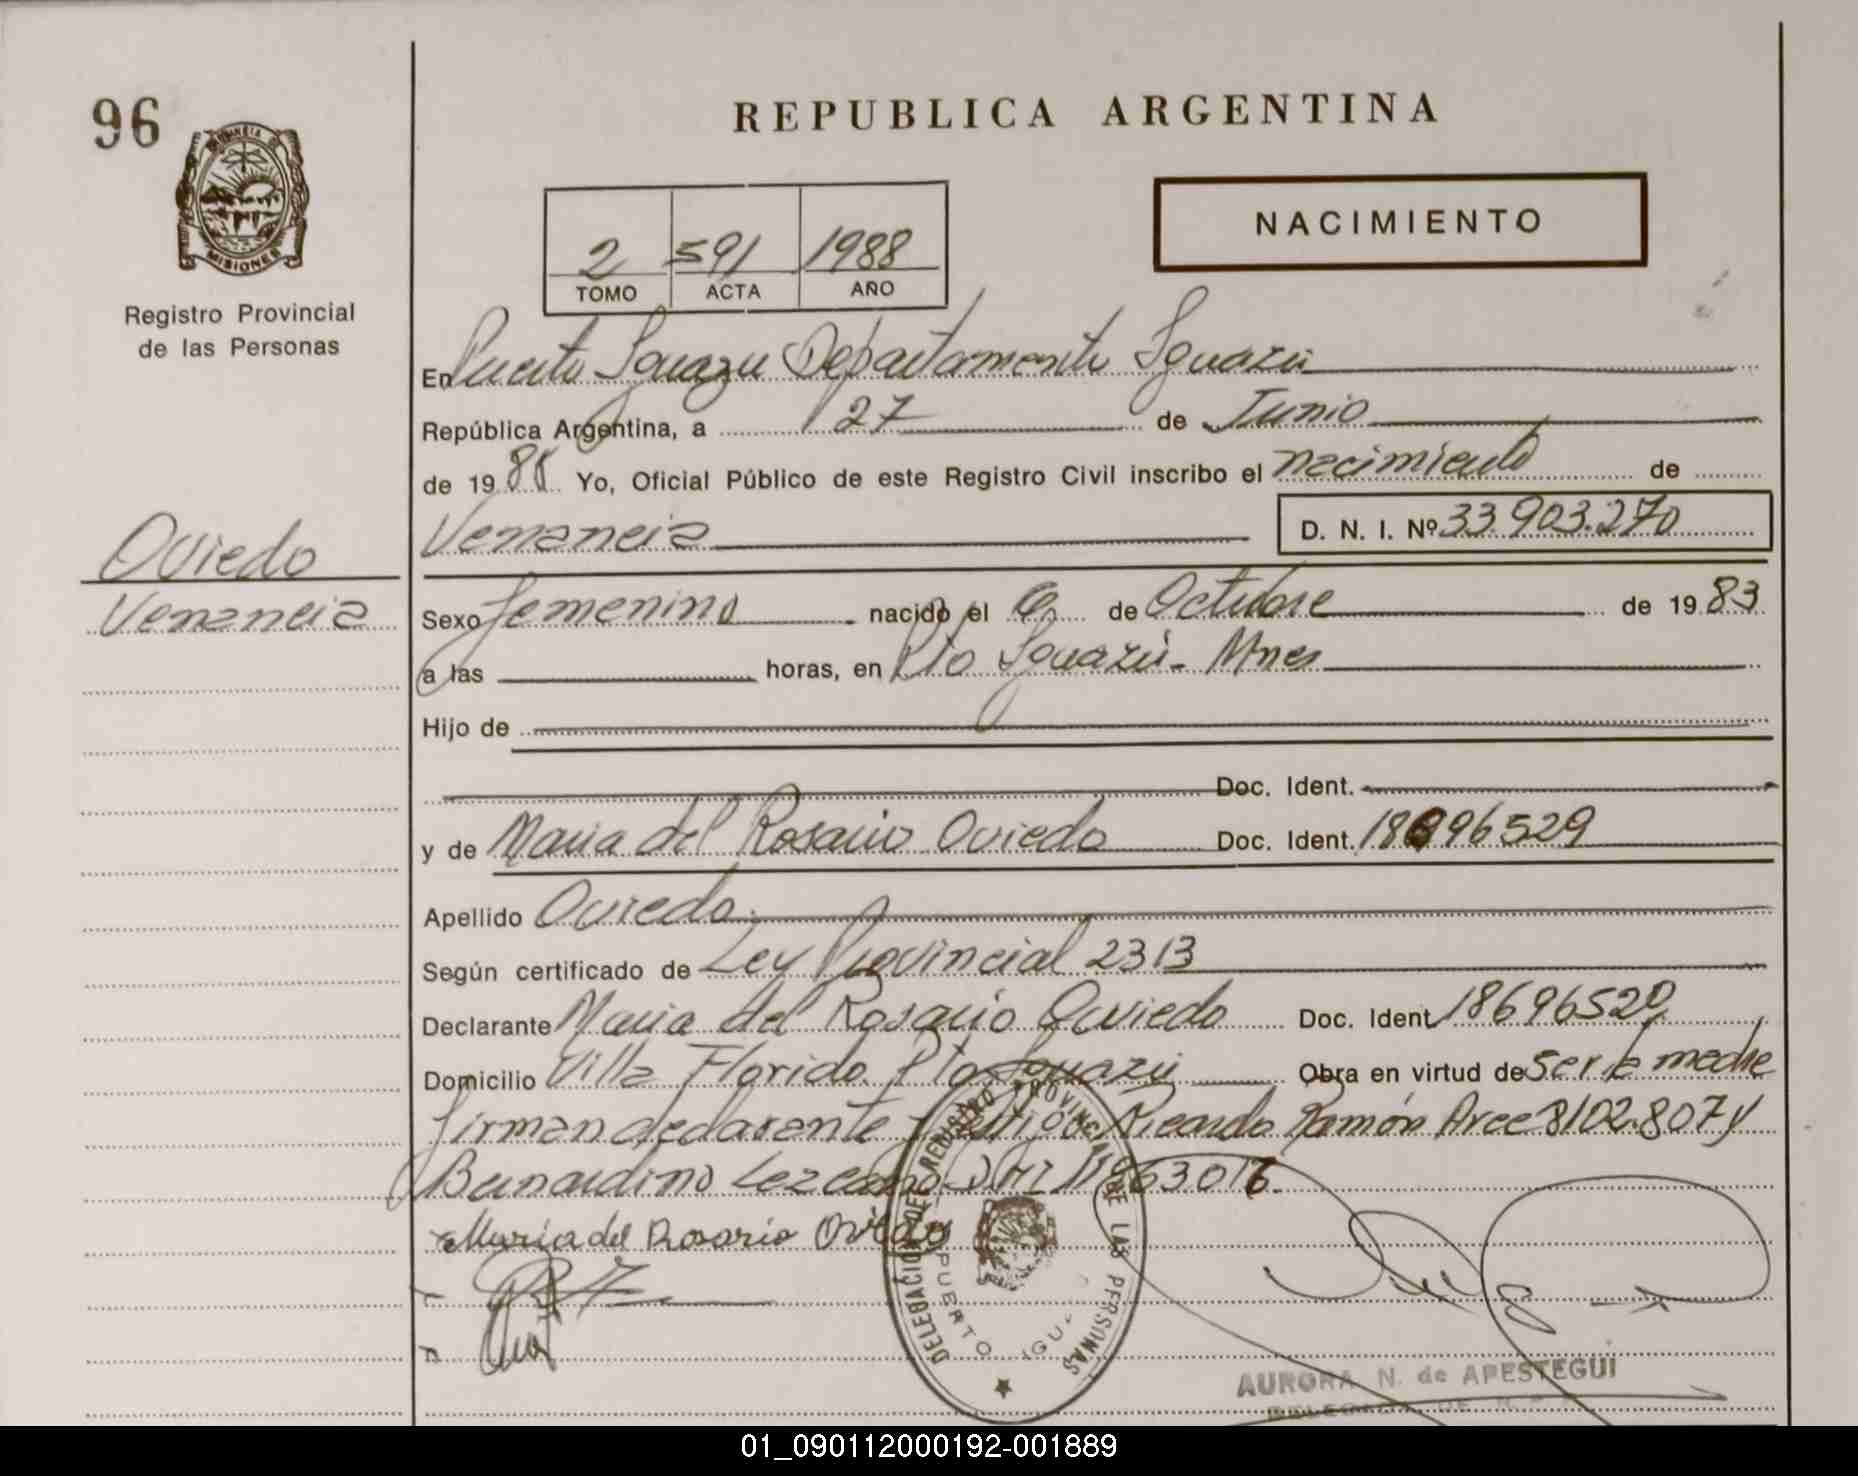 96
REPUBLICA ARGENTINA
PROVINCIA DE
MISIONES
Registro Provincial
de las Personas
2 591 1988
TOMO ACTA AÑO
NACIMIENTO
En Puerto Iguazu Departamento Iguazú
República Argentina, a 27 de Junio
de 1988 Yo, Oficial Público de este Registro Civil inscribo el nacimiento de
Venancia D. N. I. Nº 33.903.270
Oviedo
Venancia
Sexo femenino nacido el 6 de Octubre de 1983
a las horas, en Pto Iguazú - Mnes
Hijo de
Doc. Ident.
y de Maria del Rosario Oviedo Doc. Ident. 18696529
Apellido Oviedo
Según certificado de Ley Provincial 2313
Declarante Maria del Rosario Oviedo Doc. Ident 18696529
Domicilio Villa Florida Pto Iguazú Obra en virtud de ser la madre
firman declarante y testigos Ricardo Ramón Arce 8102.807 y
Bernardino Lezcano
Maria del Rosario Oviedo
DELEGACION DE REGISTRO PROVINCIAL DE LAS PERSONAS
PUERTO IGU
AURORA N. de APESTEGUI
01_090112000192-001889